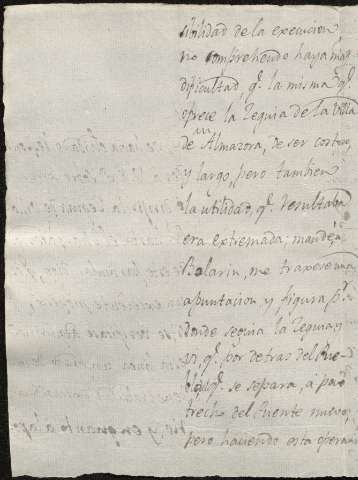 sibilidad de la execucion,
no comprehendo haya mas
dificultad, q.e la misma q.e
ofrece la Zequia de la Villa
de Almazora, de ser costosa
y largo, pero tambien
la utilidad, q.e resultaba
era extremada; mandè a
Balarin, me traxese una
apuntacion y figura p.r
donde seguia la Zequia y
si q.e por detras del
q.e se separa, a poco
trecho del Puente nuevo,
pero haciendo esta opera